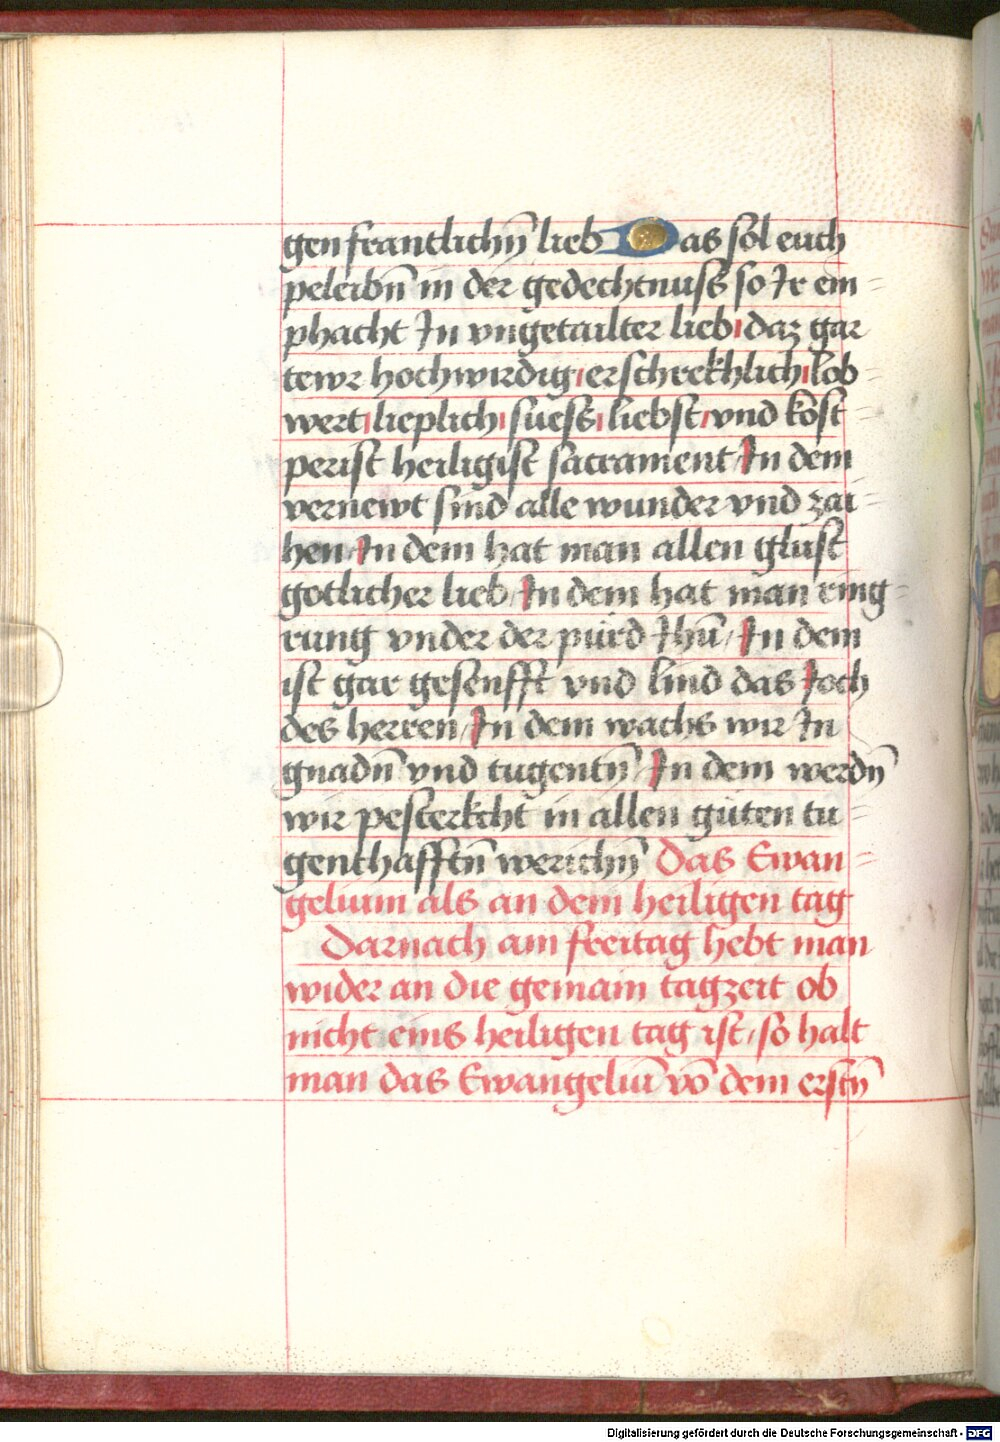 gen freantlichñ lieb Das sol euch
peleibñ in der gedechtnuss so Ir em=
phacht In vngetailter lieb daz gar
tewr hochwirdig erschrekhlich lob=
wert lieplich suess liebst vnd kost=
perist heiligist sacrament In dem
vernewt sind alle wunder vnd zai=
hen In dem hat man allen glust
gotlicher lieb In dem hat man ring=
rung vnder der pürd Jhū / In dem
ist gar gesenfft vnd lind das Joch
des herren / In dem wachs wir In
gnadñ vnd tugentñ In dem werdñ
wir pesterkcht in allen güten tu=
genthafftñ werichñ Das Ewan=
gelium als an dem heiligen tag
Darnach am freitag hebt man
wider an die gemain tagzeit ob
nicht eins heiligen tag ist / so halt
man das Ewangeliū vō dem erstñ
Digitalisierung gefördert durch die Deutsche Forschungsgemeinschaft - DFG